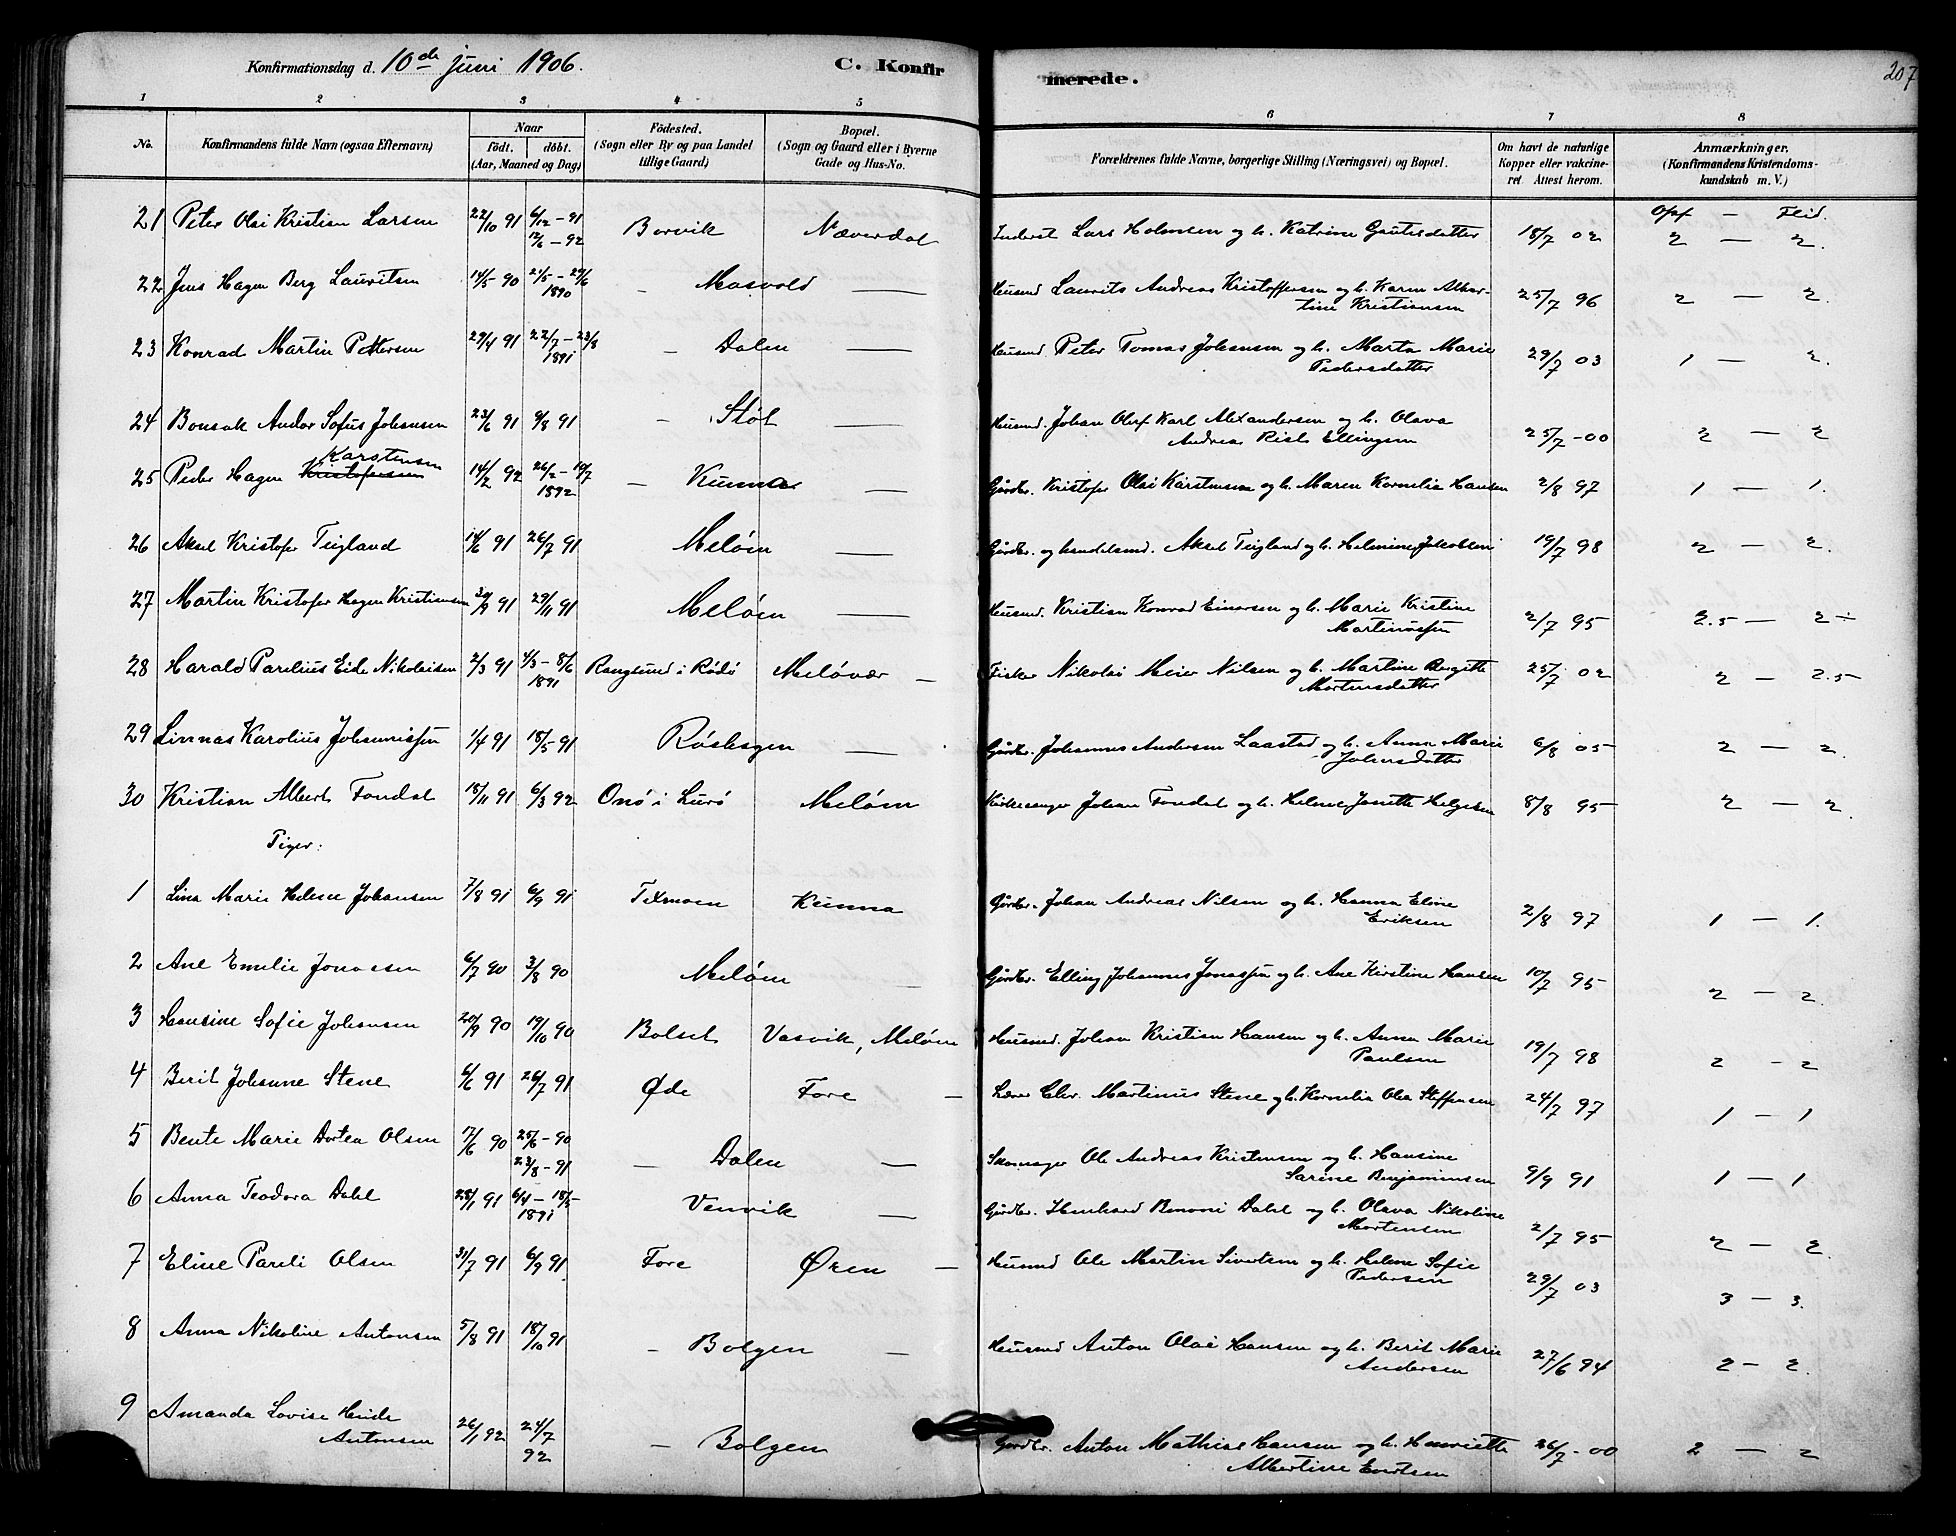 207
Konfirmationsdag d. 10de juni 1906. C. Konfirmerede.
1 2 3 4 5 6 7 8
No. Konfirmandens fulde Navn (ogsaa Efternavn) Naar födt. döbt. (Aar, Maaned og Dag) Födested. (Sogn eller By og paa Landet tillige Gaard) Bopæl. (Sogn og Gaard eller i Byerne Gade og Hus-No. Forældrenes fulde Navne, borgerlige Stilling (Næringsvei) og Bopæl. Om havt de naturlige Kopper eller vakcineret. Attest herom. Anmærkninger. (Konfirmandens Kristendomskundskab m. V.)
Flid.
21 Peter Olai Kristian Larsen 22/10 91 6/12 – 91 12/6 – 92 Borvik Næverdal Inderst Lars Holmsen og h. Katrine Gautisdatter 18/7 02 2 — 2.
22 Jens Hagen Berg Lauritsen 14/5 90 21/5 – 29/6 1890 – Mosvold — Husmd Laurits Andreas Kristoffersen og h. Karen Albertine Kristiansen 25/7 96 2 — 2.
23 Konrad Martin Pettersen 29/4 91 22/7 – 23/8 1891 – Dalen — Husmd Peter Tomas Johansen og h. Marta Marie Pedersdatter 29/7 03 1 — 2.
24 Bonsak Andor Sofus Johansen 23/6 91 9/8 91 – Støt — Husmd. Johan Oluf Karl Alexandersen og h. Olava Andrea Risk Ellingsen 25/7 -00 2 — 2
25 Peder Hagen Kristofersen Karstensen 14/2 92 26/2 – 19/7 1892 – Kunna — Gårdbr. Kristofer Olai Karstensen og h. Maren Kornelia Hansen 2/8 97 1 — 1.
26 Aksel Kristofer Teigland 14/6 91 26/7 91 Meløen — Gårdbr. og handelsmd. Aksel Teigland og h. Helmine Jakobsen 19/7 98 2 — 2.
27 Martin Kristofer Hagen Kristiansen 30/9 91 29/11 91 Meløen — Husmd. Kristian Konrad Einarsen og h. Marie Kristine Martinussen 2/7 95 2.5 — 2 ÷
28 Harald Parelius Eide Nikolaisen 2/3 91 4/3 – 8/6 1891 Rangsund i Rødø Meløvær – Fisker Nikolai Meier Nilsen og h. Martine Bergitte Mortensdatter 25/7 02 2 — 2.5
29 Linnas Karolius Johannissen 1/4 91 18/5 91 Røshagen — Gårdbr. Johannes Andersen Laastad og h. Anna Marie Johnsdatter 6/8 05 2 — 2.
30 Kristian Albert Fondal 18/11 91 6/3 92 Onø i Lurø Meløen Kirkesanger Johan Fondal og h. Helene Janette Helgesen 8/8 95 2 — 2.
Piger:
1 Lina Marie Helene Johansen 7/8 91 6/9 91 Telmoen Kunna Gårdbr. Johan Andreas Nilsen og h. Hanna Eline Eriksen 2/8 97 1 — 1.
2 Ane Emelie Jonassen 6/7 90 3/8 90 Meløen — Gårdbr. Elling Johannes Jonassen og h. Ane Kirstine Hansen 10/7 95 2 — 2.
3 Hansine Sofie Johansen 20/9 90 19/10 90 Bolset Vasvik, Meløen Husmd. Johan Kristian Hansen og h. Anna Marie Paulsen 19/7 98 2 – 2
4 Berit Johanne Stene 6/6 91 26/7 91 Øde Fore – Lærer Chr. Martinus Stene og h. Kornelia Olea Steffensen 24/7 97 1 — 1
5 Bente Marie Dortea Olsen 7/6 90 25/6 – 90 23/8 – 91 – Dalen — Skomager Ole Andreas Kristensen og h. Hansine Sarine Benjaminsen 9/9 91 1 — 1
6 Anna Teodora Dahl 28/1 91 6/4 – 18/5 1891 Venvik — Gårdbr. Henhard Benoni Dahl og h. Olava Nikoline Mortensen 2/7 95 2 — 2.
7 Eline Pareli Olsen 31/7 91 6/9 91. Fore Øren – Husmd Ole Martin Sivertsen og h. Helene Sofie Pedersen 29/7 03 3 — 3.
8 Anna Nikoline Antonsen 5/8 91 18/10 91 – Bolgen – Husmd Anton Olai Hansen og h. Berit Marie Andersen 27/6 94 2 — 2.
9 Amanda Lovise Antonsen 26/1 92 24/7 92 – Bolgen Gårdbr. Anton Mathias Hansen og h. Henriette Albertine Evertsen 26/7 -00 2 — 2